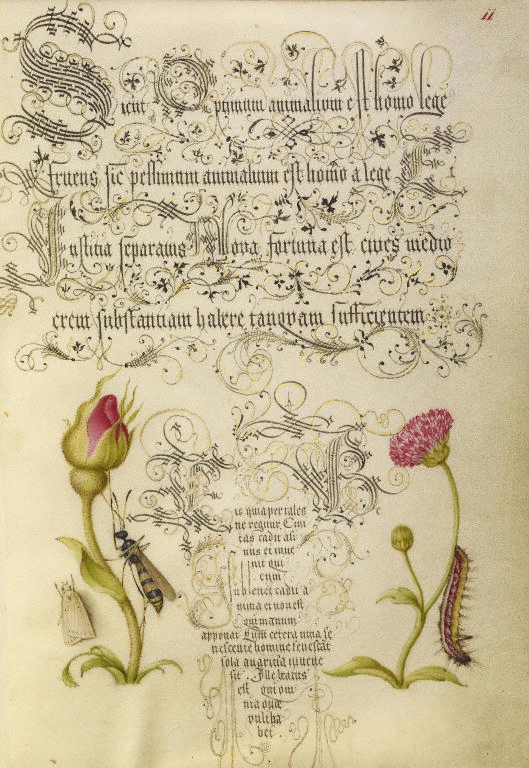 ii
Sicut Optimum animalium est homo lege
fruens, sic pessimum animalium est homo a lege Et
Iustitia separatus. Nova fortuna est cives medio
crem substantiam habere tanquam sufficientem
is quia per tales
ne regitur. Civi
tas cadit
nus et
nit qui
cum
Sublevet cadit a
nima et non est
qui manum
apponat Cum cetera
nescente homine senescāt
sola avaritia iuvene
sit. Ille beatus
est qui om
nia quae
vult ha
bet